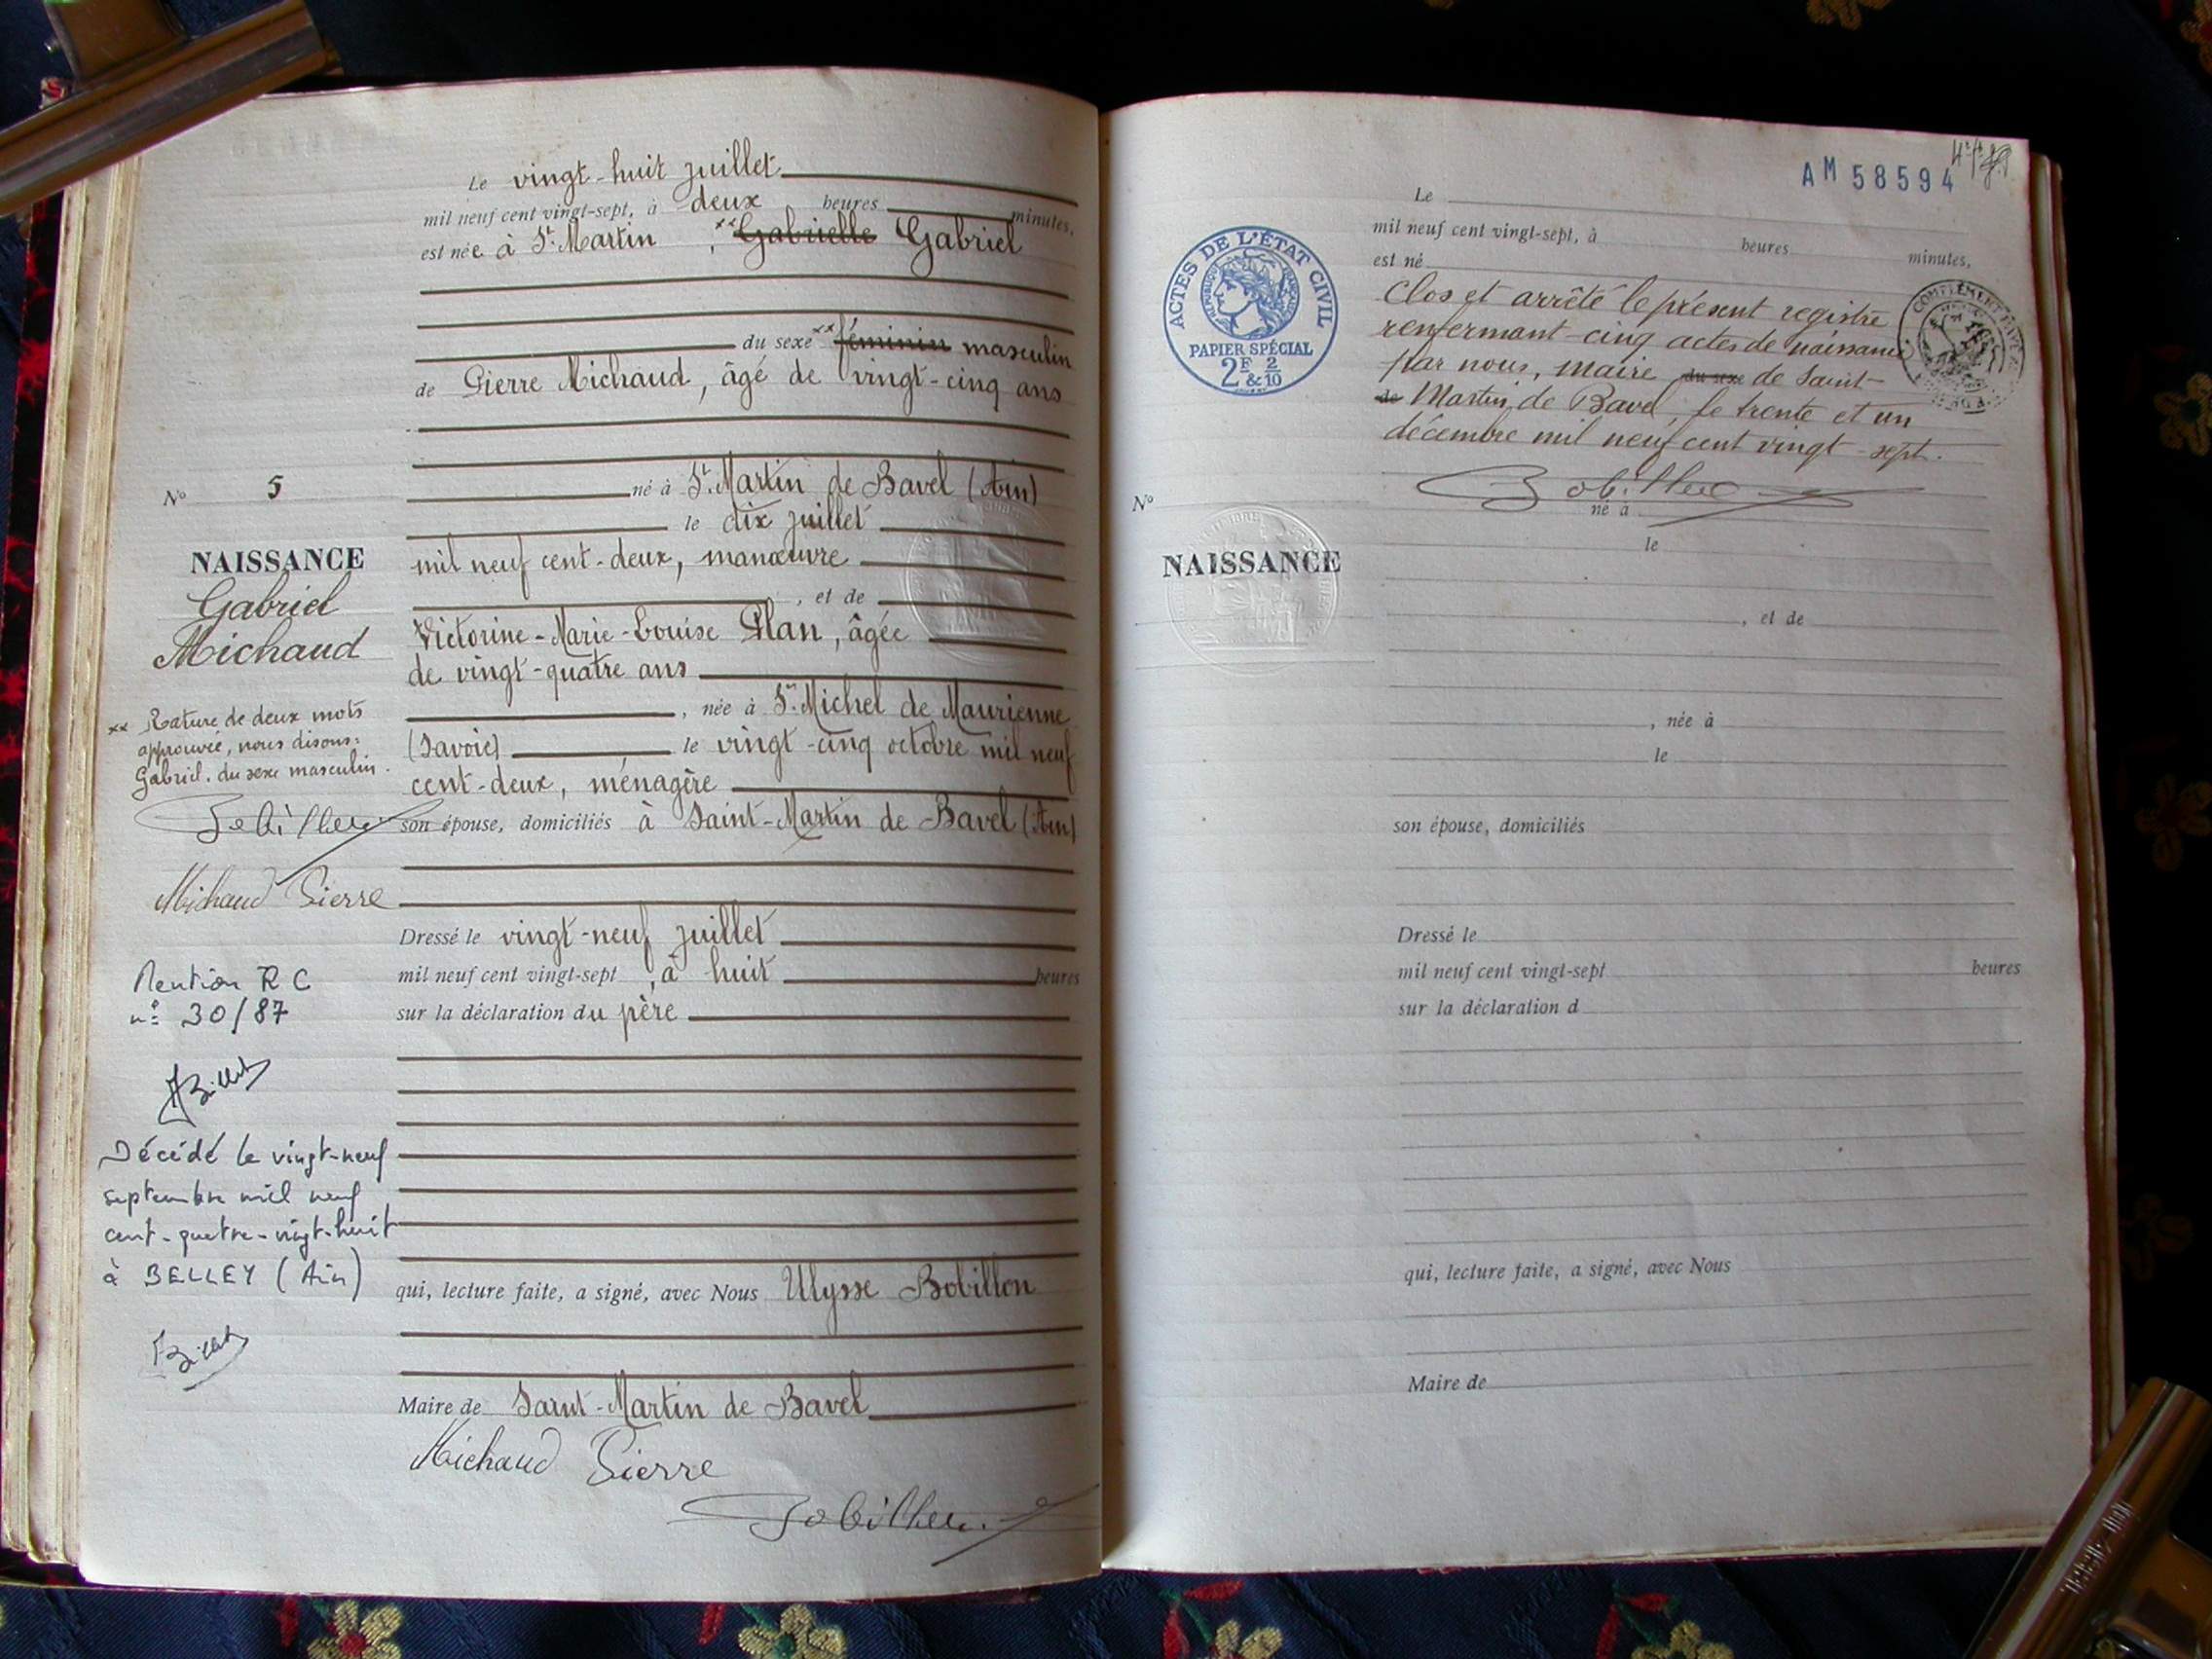 Le vingt-huit juillet
mil neuf cent vingt-sept, à deux heures minutes,
est née à St. Martin, xx Gabrielle Gabriel
du sexe xx féminin masculin
de Pierre Michaud, âgé de vingt-cinq ans
né à St. Martin de Bavel (Ain)
le dix juillet
mil neuf cent-deux, manœuvre
, et de
Victorine-Marie-Louise Plan, âgée
de vingt-quatre ans
, née à St. Michel de Maurienne
(Savoie) le vingt-cinq octobre mil neuf
cent-deux, ménagère
son épouse, domiciliés à Saint-Martin de Bavel (Ain)
Dressé le vingt-neuf juillet
mil neuf cent vingt-sept, à huit heures
sur la déclaration du père
qui, lecture faite, a signé, avec Nous Ulysse Bobillon
Maire de Saint-Martin de Bavel
Michaud Pierre
Bobillon
No 5
NAISSANCE
Gabriel
Michaud
xx Rature de deux mots
approuvée, nous disons:
Gabriel. du sexe masculin.
Bobillon
Michaud Pierre
Mention RC
n° 30/87
Billet
Décédé le vingt-neuf
septembre mil neuf
cent-quatre-vingt-huit
à BELLEY (Ain)
Billet
AM 58594
ACTES DE L'ÉTAT CIVIL
RÉPUBLIQUE FRANÇAISE
PAPIER SPÉCIAL
2F & 2/10
Le
mil neuf cent vingt-sept, à heures minutes,
est né
Clos et arrêté le présent registre
renfermant cinq actes de naissance
par nous, maire du sexe de Saint-
de Martin de Bavel, le trente et un
décembre mil neuf cent vingt-sept.
Bobillon
né à
No
le
NAISSANCE
, et de
, née à
le
son épouse, domiciliés
Dressé le
mil neuf cent vingt-sept heures
sur la déclaration d
qui, lecture faite, a signé, avec Nous
Maire de